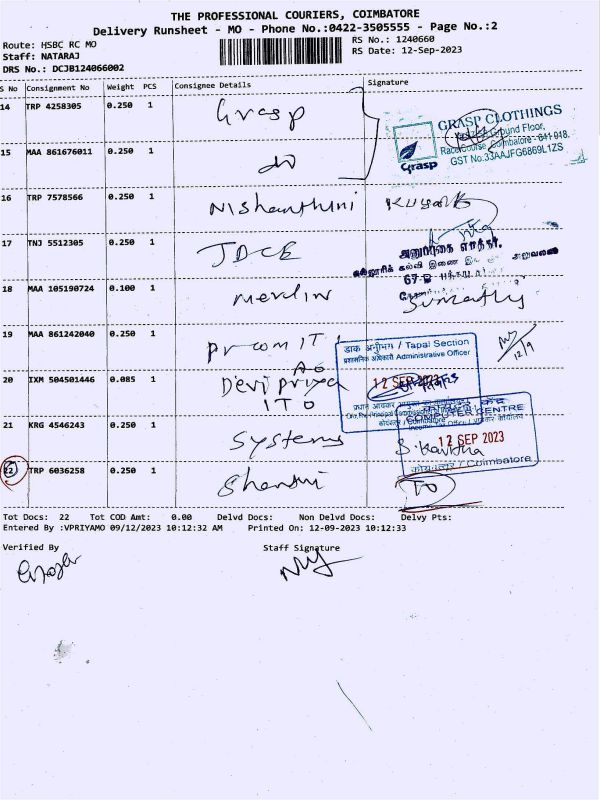 THE PROFESSIONAL COURIERS, COIMBATORE
Delivery Runsheet - MO - Phone No.:0422-3505555 - Page No.:2
Route: HSBC RC MO
RS No.: 1240660
Staff: NATARAJ
RS Date: 12-Sep-2023
DRS No.: DCJB124066002
S No Consignment No Weight PCS Consignee Details Signature
14 TRP 4258305 0.250 1 Grasp
GRASP CLOTHINGS
Ground Floor,
Race Course, Coimbatore - 641 018.
GST No.33AAJFG6869L1ZS
Grasp
15 MAA 861676011 0.250 1 do
16 TRP 7578566 0.250 1 Nishanthini
17 TNJ 5512305 0.250 1 JDCE
18 MAA 105190724 0.100 1 Merlin Sumathy
19 MAA 861242040 0.250 1 Pr com IT
12/9
डाक अनुभाग / Tapal Section
प्रशासनिक अधिकारी Administrative Officer
12 SEP 2023
20 IXM 504501446 0.085 1 AO
Devi priya
ITO
COMPUTER CENTRE
21 KRG 4546243 0.250 1 Systems
12 SEP 2023
कोयम्बत्तूर / Coimbatore
22 TRP 6036258 0.250 1 Shanthi
Tot Docs: 22 Tot COD Amt: 0.00 Delvd Docs: Non Delvd Docs: Delvy Pts:
Entered By :VPRIYAMO 09/12/2023 10:12:32 AM Printed On: 12-09-2023 10:12:33
Verified By Staff Signature